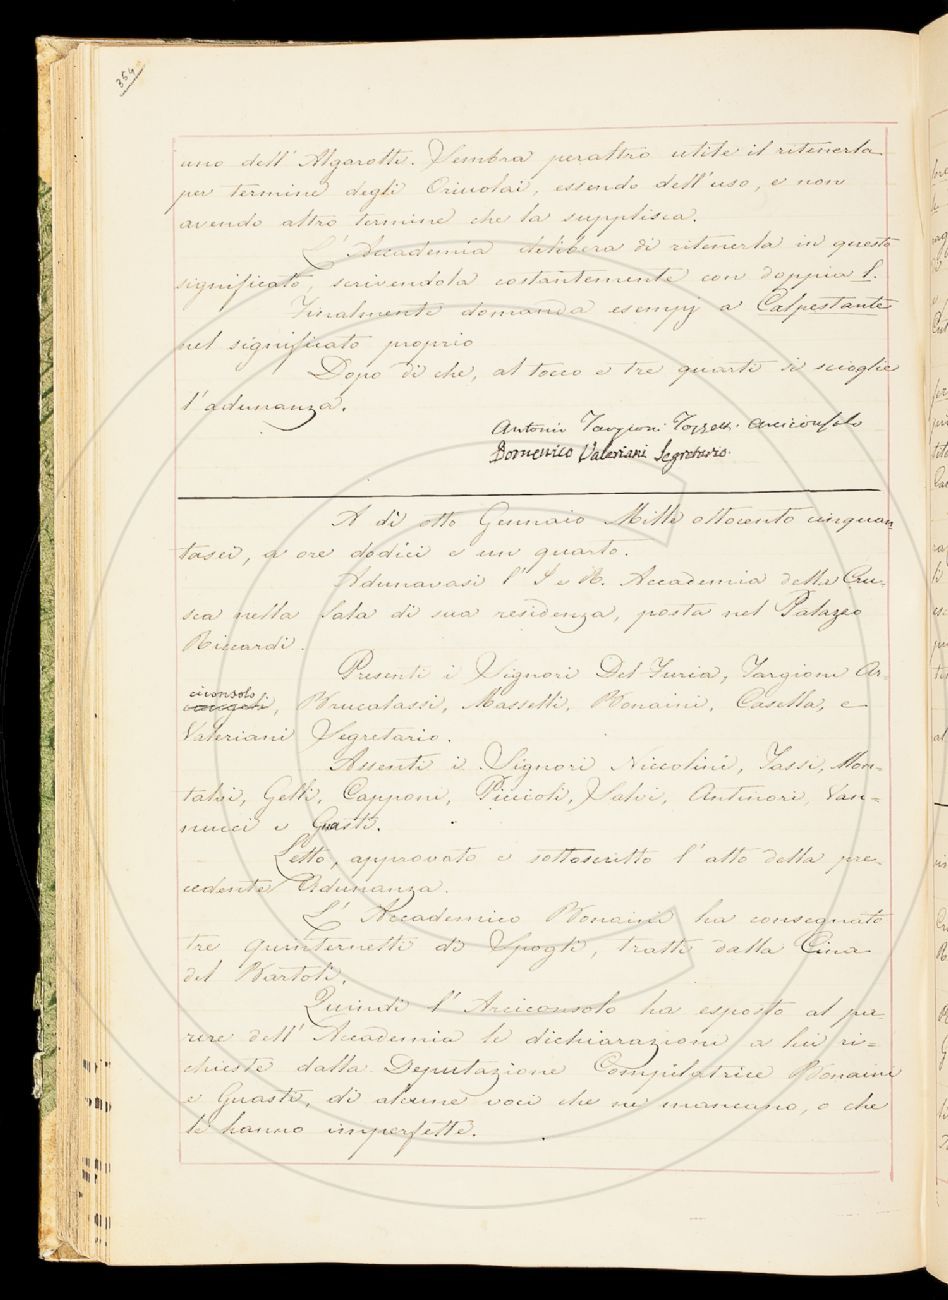 354
uno dell'Algarotti. Sembra peraltro utile il ritenerla
per termine degli Oriuolai, essendo dell'uso, e non
avendo altro termine che la supplisca.
L'Accademia delibera di ritenerla in questo
significato, scrivendola costantemente con doppia l.
Finalmente domanda esempj a Calpestante
nel significato proprio
Dopo di che, al tocco e tre quarti si scioglie
l'adunanza.
Antonio Targioni Tozzetti Arciconsolo
Domenico Valeriani Segretario.
A dì otto Gennaio Mille ottocento cinquan
tasei, a ore dodici e un quarto.
Adunavasi l'I. e R. Accademia della Cru-
sca nella Sala di sua residenza, posta nel Palazzo
Riccardi.
Presenti i Signori Del Furia, Targioni Ar-
ciconsolo, Brucalassi, Masselli, Bonaini, Casella, e
Valeriani Segretario.
Assenti i Signori Niccolini, Tassi, Mon-
talvi, Gelli, Capponi, Piccioli, Salvi, Antinori, Van-
nucci e Guasti.
Letto, approvato e sottoscritto l'atto della pre-
cedente Adunanza.
L'Accademico Bonaini ha consegnato
tre quinternetti di Spogli, tratti dalla Cina
del Bartoli.
Quindi l'Arciconsolo ha esposto al pa-
rere dell'Accademia le dichiarazioni a lui ri-
chieste dalla Deputazione Compilatrice Bonaini
e Guasti, di alcune voci che ne mancano, o che
le hanno imperfette.